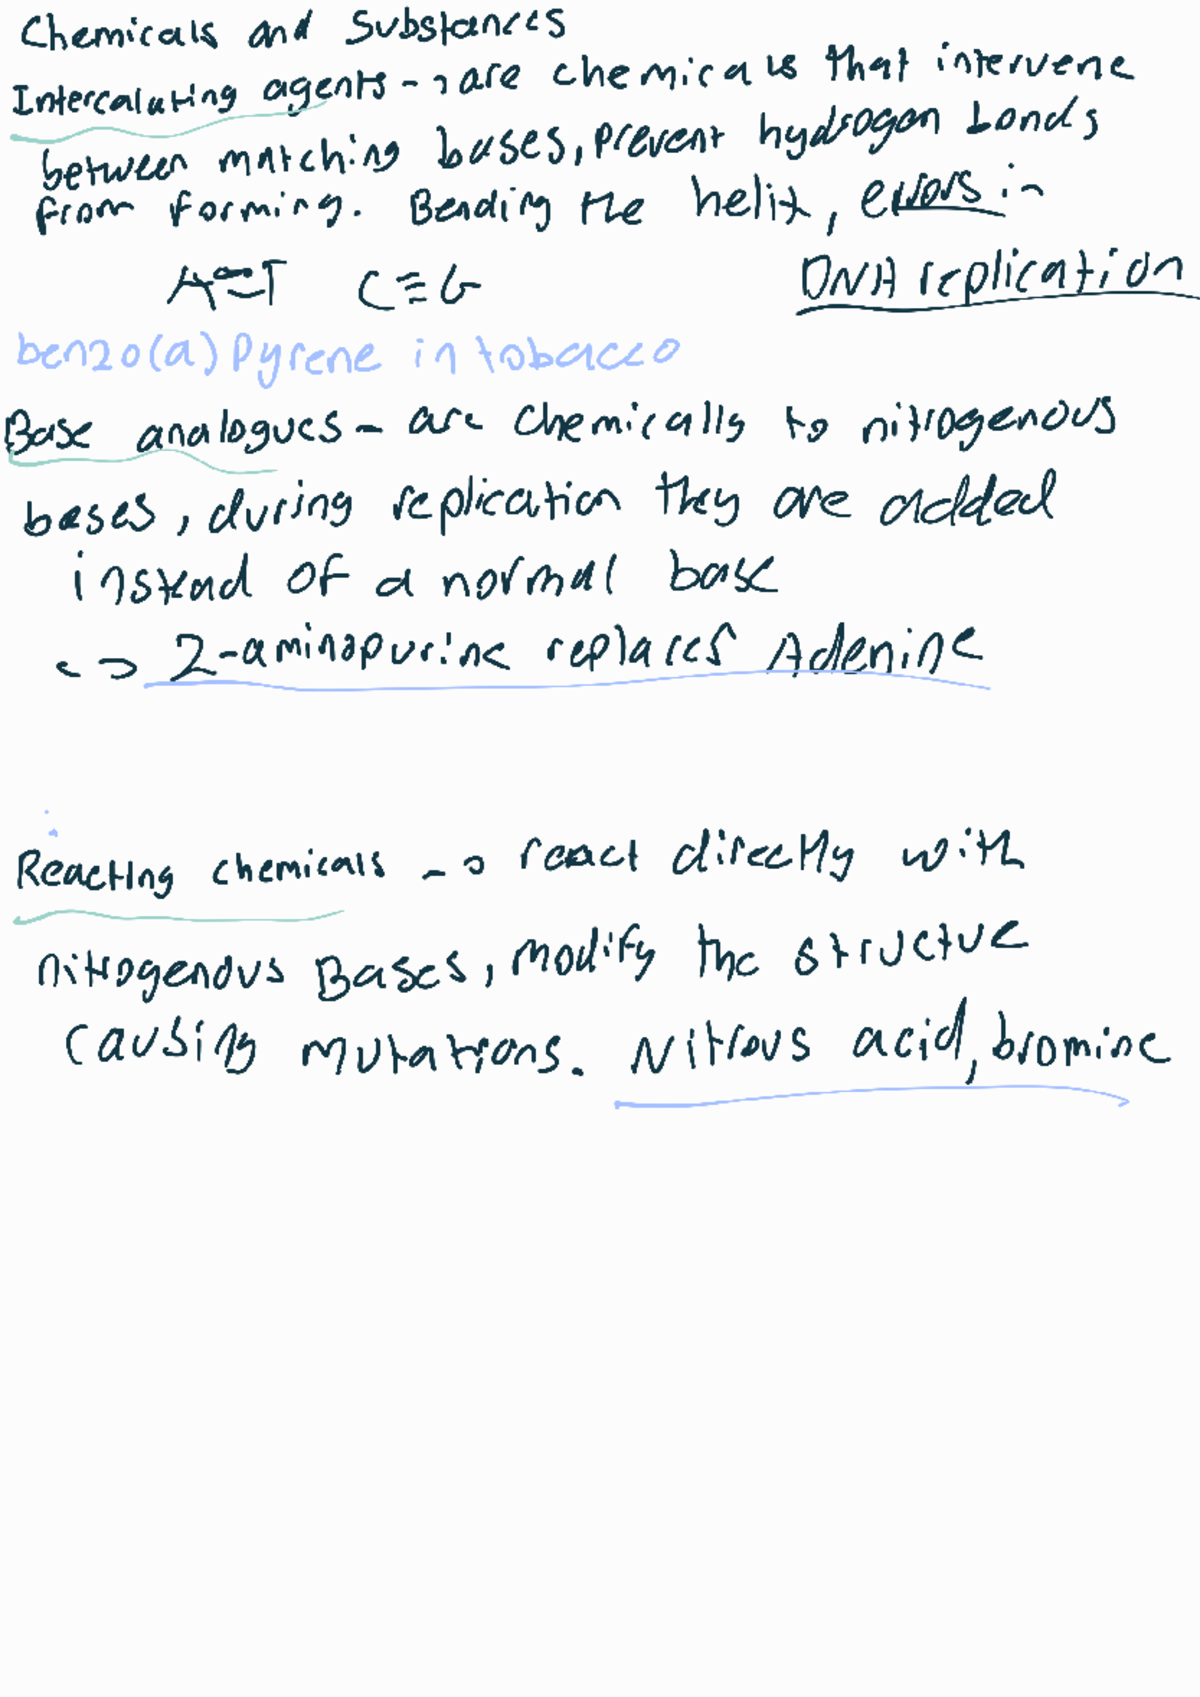 Chemicals and Substances
Intercalating agents -> are chemicals that intervene
between matching bases, prevent hydrogen bonds
from forming. Bending the helix, errors in
DNA replication
A=T C≡G
benzo(a)Pyrene in tobacco
Base analogues - are chemically to nitrogenous
bases, during replication they are added
instead of a normal base
↪ 2-aminopurine replaces Adenine
Reacting chemicals -> react directly with
nitrogenous Bases, modify the structue
causing mutations. Nitrous acid, bromine